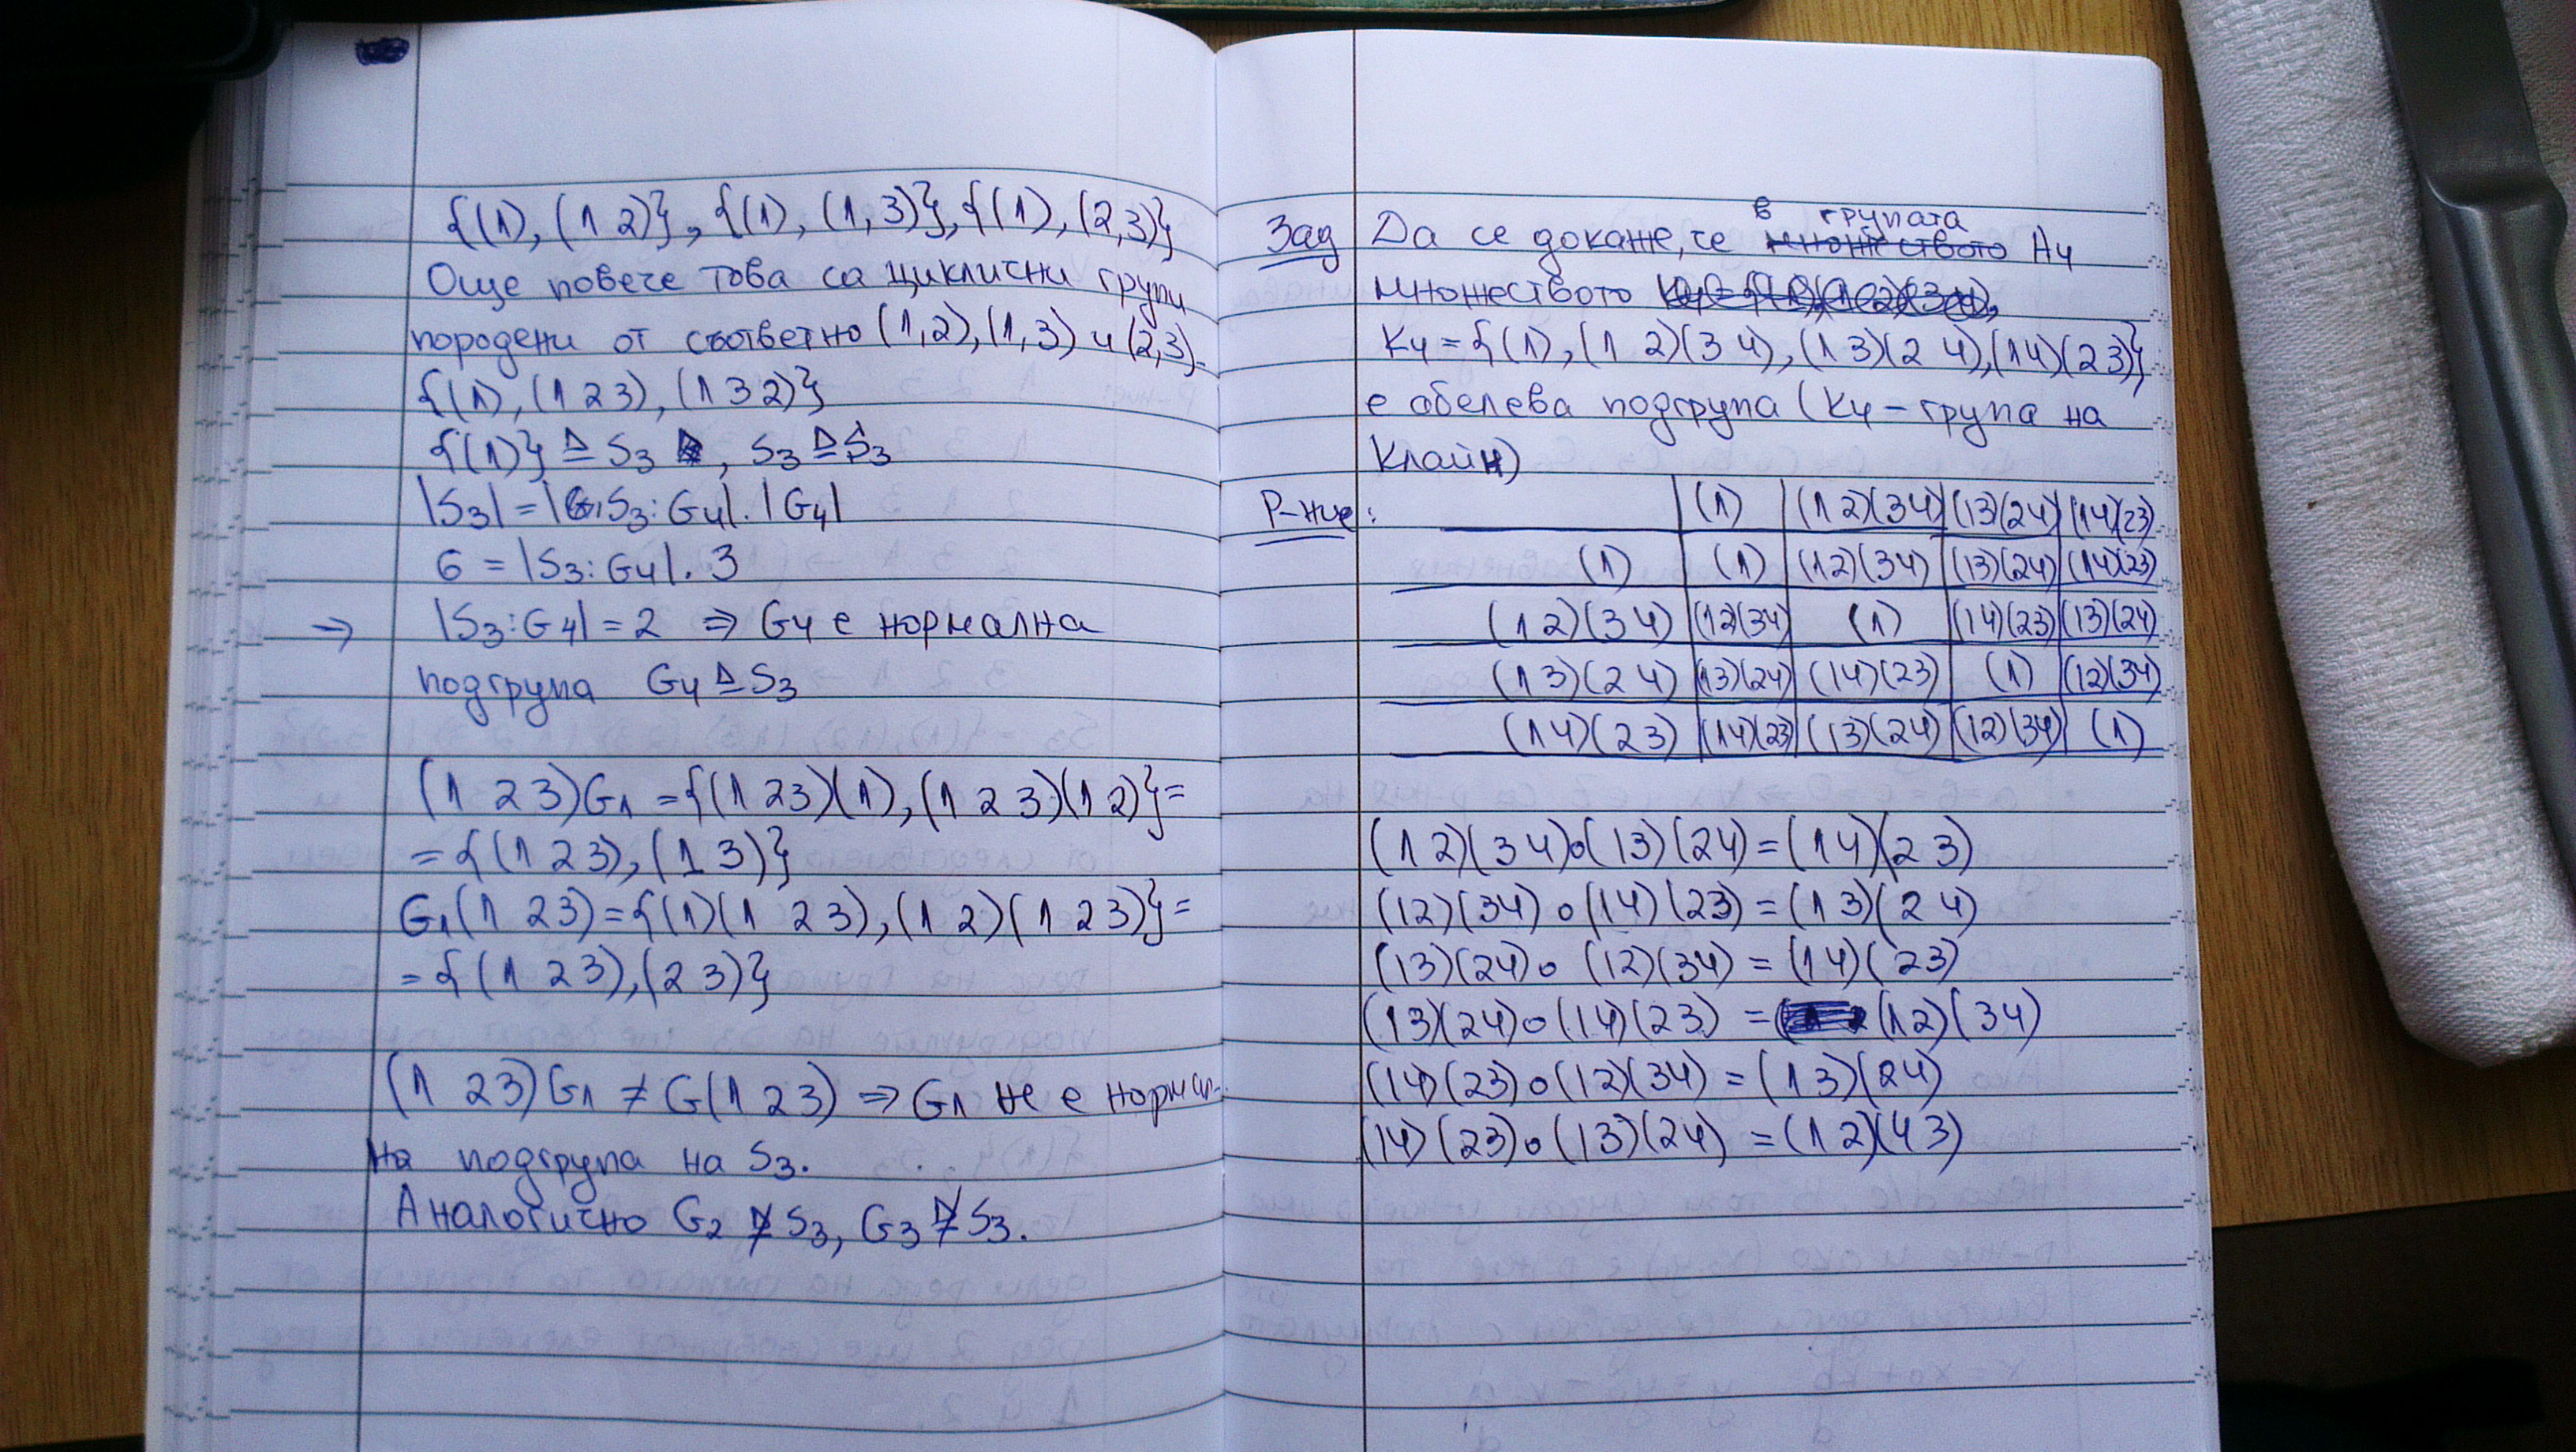 {(1), (1 2)}, {(1), (1,3)}, {(1), (2,3)}
Още повече това са циклични групи
породени от съответно (1,2), (1,3) и (2,3).
{(1), (1 2 3), (1 3 2)}
{(1)} ⊴ S3 , S3 ⊴ S3
|S3| = |S3 : G4| . |G4|
6 = |S3 : G4| . 3
→ |S3 : G4| = 2 ⇒ G4 е нормална
подгрупа G4 ⊴ S3
(1 2 3)G1 = {(1 2 3)(1), (1 2 3)(1 2)} =
= {(1 2 3), (1 3)}
G1(1 2 3) = {(1)(1 2 3), (1 2)(1 2 3)} =
= {(1 2 3), (2 3)}
(1 2 3)G1 ≠ G(1 2 3) ⇒ G1 не е нормал-
на подгрупа на S3.
Аналогично G2 ⋬ S3, G3 ⋬ S3.
Зад Да се докаже, че в групата A4
множеството
K4 = {(1), (1 2)(3 4), (1 3)(2 4), (14)(23)}
е абелева подгрупа (K4 - група на
Клайн)
Р-ние: (1) (1 2)(34) (13)(24) (14)(23)
(1) (1) (12)(34) (13)(24) (14)(23)
(1 2)(3 4) (12)(34) (1) (14)(23) (13)(24)
(1 3)(2 4) (13)(24) (14)(23) (1) (12)(34)
(14)(23) (14)(23) (13)(24) (12)(34) (1)
(1 2)(34)∘(13)(24) = (14)(23)
(12)(34)∘(14)(23) = (13)(24)
(13)(24)∘(12)(34) = (14)(23)
(13)(24)∘(14)(23) = (12)(34)
(14)(23)∘(12)(34) = (13)(24)
(14)(23)∘(13)(24) = (12)(43)